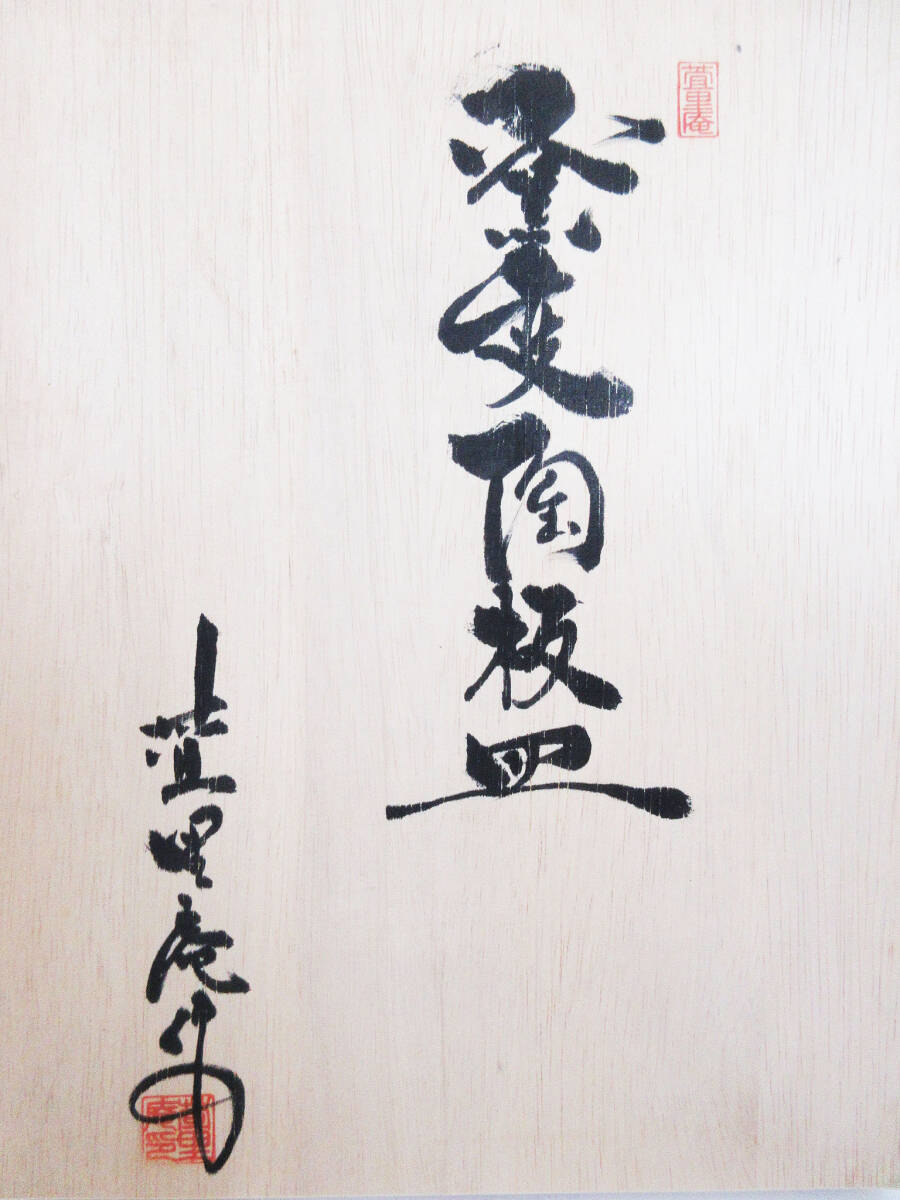 萱里庵
窯変陶板皿
萱里庵